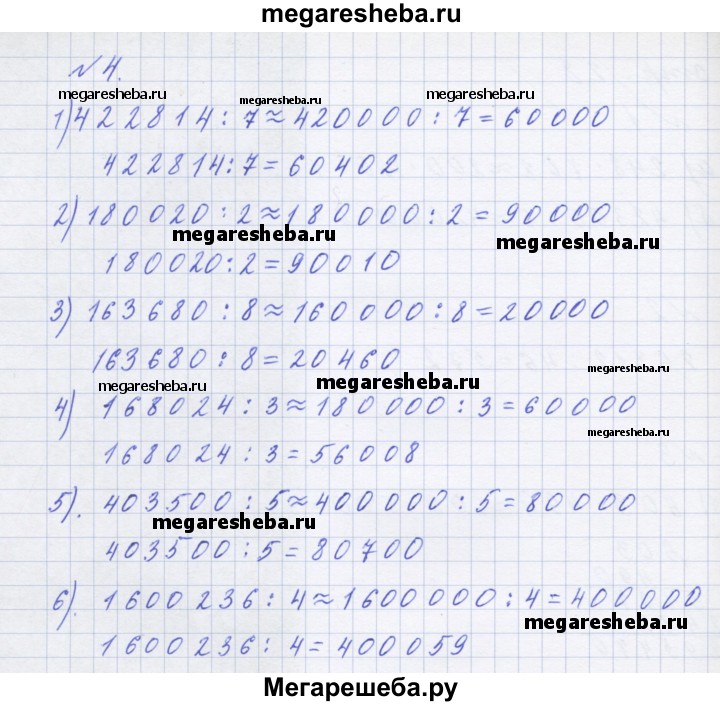 megaresheba.ru
N 4.
megaresheba.ru megaresheba.ru megaresheba.ru
1) 422814 : 7 ≈ 420000 : 7 = 60000
422814 : 7 = 60402
2) 180020 : 2 ≈ 180000 : 2 = 90000
megaresheba.ru megaresheba.ru
180020 : 2 = 90010
3) 163680 : 8 ≈ 160000 : 8 = 20000
163680 : 8 = 20460
megaresheba.ru megaresheba.ru megaresheba.ru
4) 168024 : 3 ≈ 180000 : 3 = 60000
megaresheba.ru
168024 : 3 = 56008
5). 403500 : 5 ≈ 400000 : 5 = 80000
megaresheba.ru
403500 : 5 = 80700
6). 1600236 : 4 ≈ 1600000 : 4 = 400000
megaresheba.ru
1600236 : 4 = 400059
Мегарешеба.ру